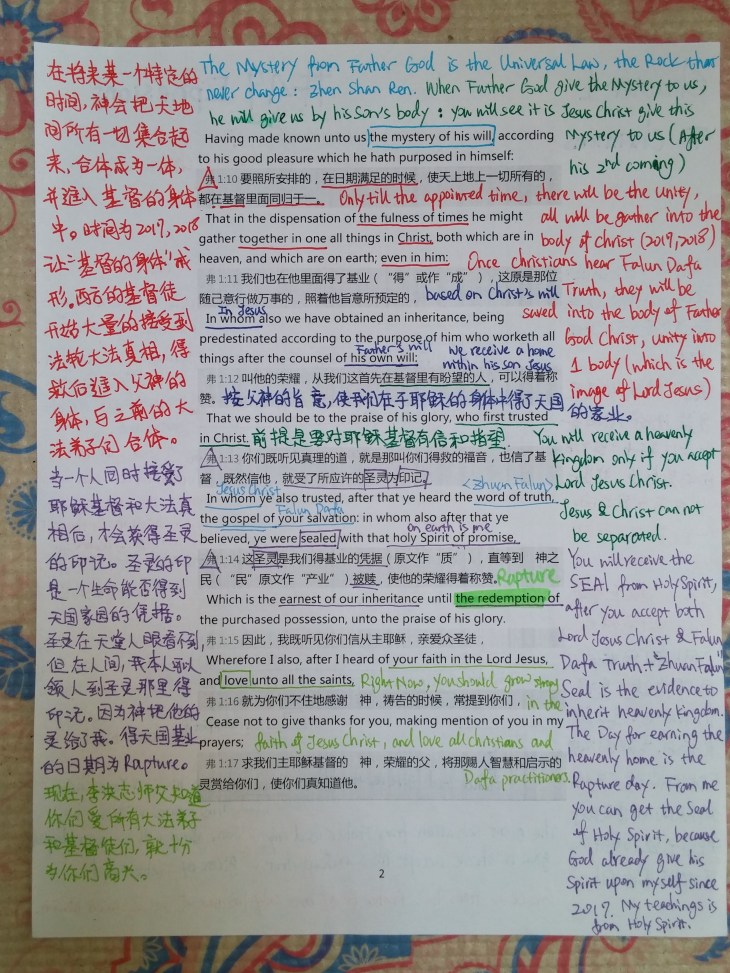 The Mystery from Father God is the Universal Law, the Rock that
never change: Zhen Shan Ren. When Father God give the Mystery to us,
he will give us by his son's body: you will see it is Jesus Christ give this
Mystery to us (After
his 2nd coming)
在将来某一个特定的
时间,神会把天地
间所有一切集合起
来,合体成为一体,
并进入基督的身体
中。时间为2017,2018
让"基督的身体"成
形。西方的基督徒
开始大量的接受到
法轮大法真相,得
救后进入父神的
身体,与之前的大
法弟子们合体。
当一个人同时接受
耶稣基督和大法真
相后,才会获得圣灵
的印记。圣灵的印
是一个生命能否得到
天国家园的凭据。
圣灵在天堂人眼看不到,
但在人间,我本人可以
领人到圣灵那里得
印记。因为神把他的
灵给了我。得天国基业
的日期为Rapture。
现在,李洪志师父知道
你们爱所有大法弟子
和基督徒们,就十分
为你们高兴。
Having made known unto us the mystery of his will, according
to his good pleasure which he hath purposed in himself:
弗 1:10 要照所安排的,在日期满足的时候,使天上地上一切所有的,
都在基督里面同归于一。
Only till the appointed time, there will be the unity,
That in the dispensation of the fulness of times he might
gather together in one all things in Christ, both which are in
heaven, and which are on earth; even in him:
弗 1:11 我们也在他里面得了基业(“得”或作“成”),这原是那位
随己意行做万事的,照着他旨意所预定的,
based on Christ's will
In Jesus
In whom also we have obtained an inheritance, being
predestinated according to the purpose of him who worketh all
things after the counsel of his own will:
Father's will
we receive a home
within his son Jesus
弗 1:12 叫他的荣耀,从我们这首先在基督里有盼望的人,可以得着称
赞。
按父神的旨意,使我们在子耶稣的身体中得了天国
的家业。
That we should be to the praise of his glory, who first trusted
in Christ.
前提是要对耶稣基督有信和指望
弗 1:13 你们既听见真理的道,就是那叫你们得救的福音,也信了基
督,既然信他,就受了所应许的圣灵为印记。
Jesus Christ
<Zhuan Falun>
In whom ye also trusted, after that ye heard the word of truth,
Falun Dafa
the gospel of your salvation: in whom also after that ye
on earth is me
believed, ye were sealed with that holy Spirit of promise,
弗 1:14 这圣灵是我们得基业的凭据(原文作“质”),直等到 神之
民(“民”原文作“产业”)被赎,使他的荣耀得着称赞。
Rapture
Which is the earnest of our inheritance until the redemption of
the purchased possession, unto the praise of his glory.
弗 1:15 因此,我既听见你们信从主耶稣,亲爱众圣徒,
Wherefore I also, after I heard of your faith in the Lord Jesus,
and love unto all the saints,
Right Now, you should grow strong
弗 1:16 就为你们不住地感谢 神,祷告的时候,常提到你们,
in the
Cease not to give thanks for you, making mention of you in my
prayers;
faith of Jesus Christ, and love all christians and
Dafa practitioners.
弗 1:17 求我们主耶稣基督的 神,荣耀的父,将那赐人智慧和启示的
灵赏给你们,使你们真知道他。
all will be gather into the
body of christ (2017,2018)
Once christians hear Falun Dafa
Truth, they will be
saved
into the body of Father
God Christ, unity into
1 body (which is the
image of Lord Jesus)
You will receive a heavenly
kingdom only if you accept
Lord Jesus Christ.
Jesus & Christ can not
be separated.
You will receive the
SEAl from Holy Spirit,
after you accept both
Lord Jesus Christ & Falun
Dafa Truth + "Zhuan Falun"
Seal is the evidence to
inherit heavenly Kingdom.
The Day for earning the
heavenly home is the
Rapture day. From me
you can get the Seal
of Holy Spirit, because
God already give his
Spirit upon myself since
2017. My teachings is
from Holy Spirit.
2